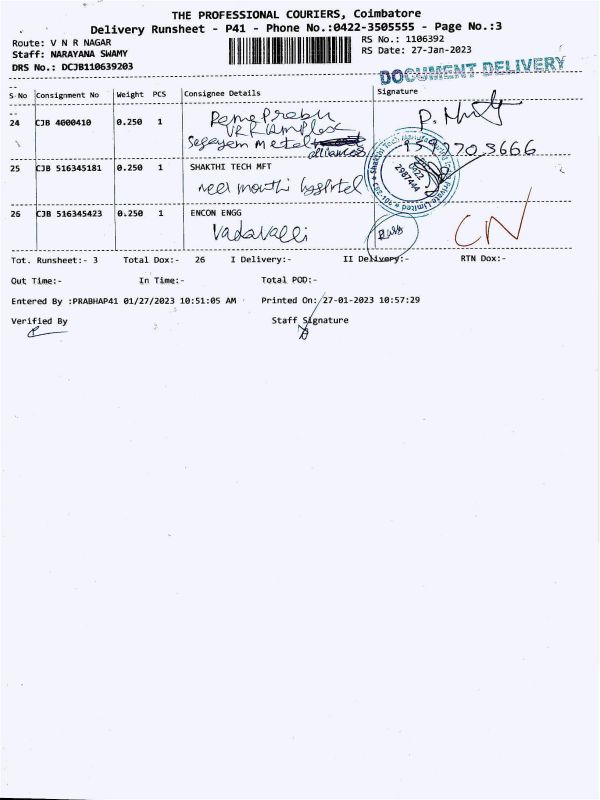 THE PROFESSIONAL COURIERS, Coimbatore
Delivery Runsheet - P41 - Phone No.:0422-3505555 - Page No.:3
Route: V N R NAGAR
RS No.: 1106392
Staff: NARAYANA SWAMY
RS Date: 27-Jan-2023
DRS No.: DCJB110639203
DOCUMENT DELIVERY
S-No Consignment No Weight PCS Consignee Details Signature
24 CJB 4000410 0.250 1
metal
25 CJB 516345181 0.250 1 SHAKTHI TECH MFT
26 CJB 516345423 0.250 1 ENCON ENGG
Vadavalli
CN
Tot. Runsheet:- 3 Total Dox:- 26 I Delivery:- II Delivery:- RTN Dox:-
Out Time:- In Time:- Total POD:-
Entered By :PRABHAP41 01/27/2023 10:51:05 AM Printed On: 27-01-2023 10:57:29
Verified By Staff Signature